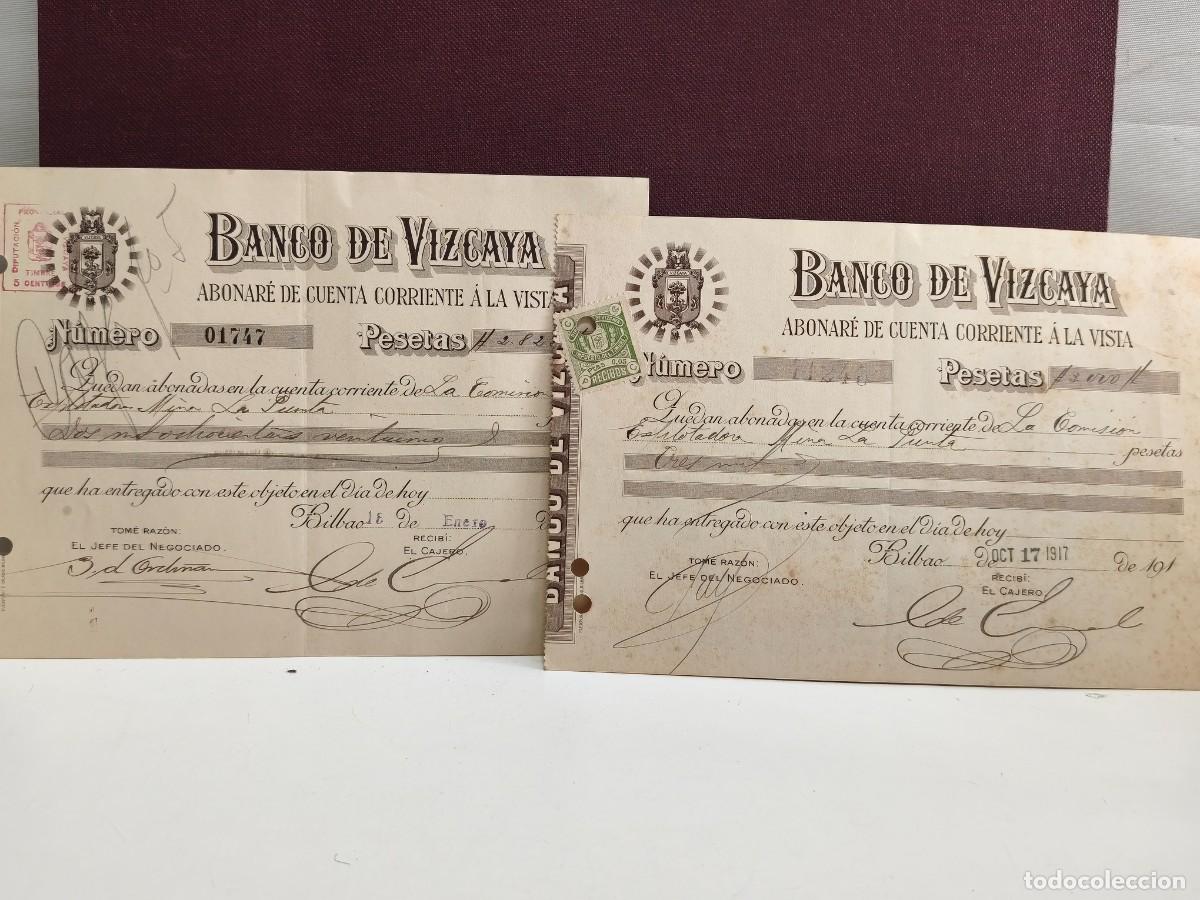 PROVINCIA
DIPUTACIÓN
TIMBRE
5 CENTIMOS
VIZCAYA
BANCO DE VIZCAYA
ABONARÉ DE CUENTA CORRIENTE Á LA VISTA
Número 01747 Pesetas # 2.82
Quedan abonadas en la cuenta corriente de La Comision
Explotadora Mina La Punta
Dos mil ochocientas veintiuno
que ha entregado con este objeto en el día de hoy
Bilbao 18 de Enero
TOMÉ RAZÓN:
EL JEFE DEL NEGOCIADO.
RECIBÍ:
EL CAJERO,
BANCO DE VIZCAYA
RECIBOS
0,05
VIZCAYA
BANCO DE VIZCAYA
ABONARÉ DE CUENTA CORRIENTE Á LA VISTA
Número Pesetas # 3000 #
Quedan abonadas en la cuenta corriente de La Comision
Explotadora Mina La Punta pesetas
Tres mil
que ha entregado con este objeto en el día de hoy
Bilbao de OCT 17 1917 de 191
TOMÉ RAZÓN:
EL JEFE DEL NEGOCIADO.
RECIBÍ:
EL CAJERO,
todocoleccion